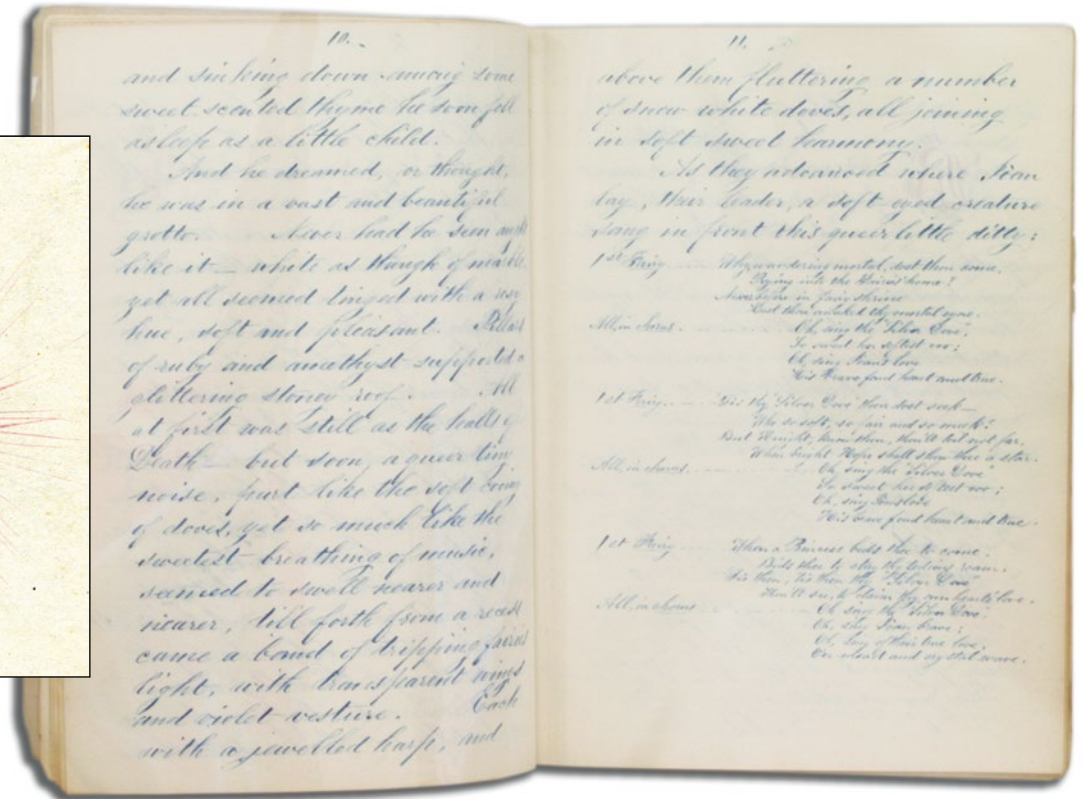 10.
and sinking down among some
sweet scented thyme he soon fell
asleep as a little child.
And he dreamed, or thought,
he was in a vast and beautiful
grotto. Never had he seen
like it — white as though of marble
yet all seemed tinged with a
hue, soft and pleasant. Pillars
of ruby and amethyst supported a
glittering stoney roof. All
at first was still as the halls of
Death — but soon, a queer
noise, part like the soft
of doves, yet so much like the
sweetest breathing of music,
seemed to swell nearer and
nearer, till forth from a recess
came a band of tripping fairies
light, with transparent wings
and violet vesture. Each
with a jewelled harp, and
11.
above them fluttering a number
of snow white doves, all joining
in soft sweet harmony.
As they advanced where
lay, their leader, a soft eyed creature
sang in front this queer little ditty:
1st Fairy Why wandering mortal, dost thou come,
Prying into the home?
Never before in fairy shrine
Hast thou mortal eyne.
All in chorus. Oh, sing the Silver Dove,
So sweet her softest coo;
Oh, sing love
His brave fond heart and true.
1st Fairy 'Tis thy Silver Dove thou dost seek—
Who so soft, so fair and so meek?
But Knight, know thou, thou'lt not far,
When bright Hope shall show thee a star.
All in chorus. Oh, sing the Silver Dove
So sweet her softest coo;
Oh, sing love
His brave fond heart and true.
1st Fairy When a Princess bids thee to come,
Bids thee to stay thy roam,
'Tis then, 'tis then thy "Silver Dove"
Thou'lt see, to thy own heart's love.
All in chorus Oh, sing the Silver Dove,
Oh, sing brave;
Oh, sing of their true love,
and crystal wave.